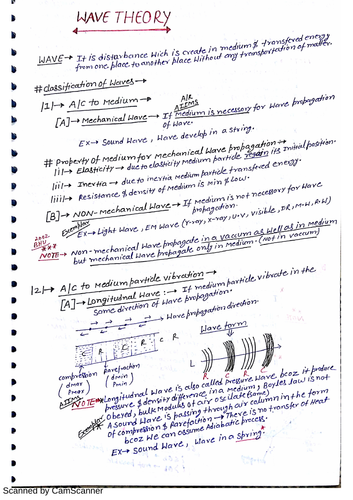 WAVE THEORY
WAVE → It is disturbance which is create in medium & transfered energy
from one place to another place without any transportation of matter.
# Classification of Waves →
|1| → A/C to Medium →
[A] → Mechanical Wave → If Medium is necessary for wave propagation
of wave.
Ex → Sound Wave, Wave develop in a string.
# Property of Medium for Mechanical wave propagation →
|i| → Elasticity → due to elasticity Medium particle regain its initial position.
|ii| → Inertia → due to inertia Medium particle transfered energy.
|iii| → Resistance & density of Medium is min & low.
[B] → NON-Mechanical Wave → If Medium is not necessary for wave
propagation.
Ex → Light Wave, EM Wave (γ-ray, x-ray, U.V, visible, IR, M.W, R.W)
2002
***
NOTE → Non-mechanical Wave propagate in a vaccum as well as in Medium
but mechanical Wave propagate only in Medium. (not in vaccum)
|2| → A/C to Medium particle vibration →
[A] → Longitudnal Wave → If Medium particle vibrate in the
Same direction of Wave propagation.
Wave propagation direction
Wave form
C R C R C R
L
R C R C
compression Rarefaction
(dmax (dmin
Pmax) Pmin)
NOTE → Longitudnal Wave is also called pressure wave bcoz it produce
pressure & density difference in a Medium, Boyles law is not
Obered, bulk Modulus of air oscillate
A Sound Wave is passing through air column in the form
of compression & Rarefaction → There is no transfer of Heat
bcoz we can assume Adiabatic process.
Ex → Sound Wave, Wave in a Spring
Scanned by CamScanner